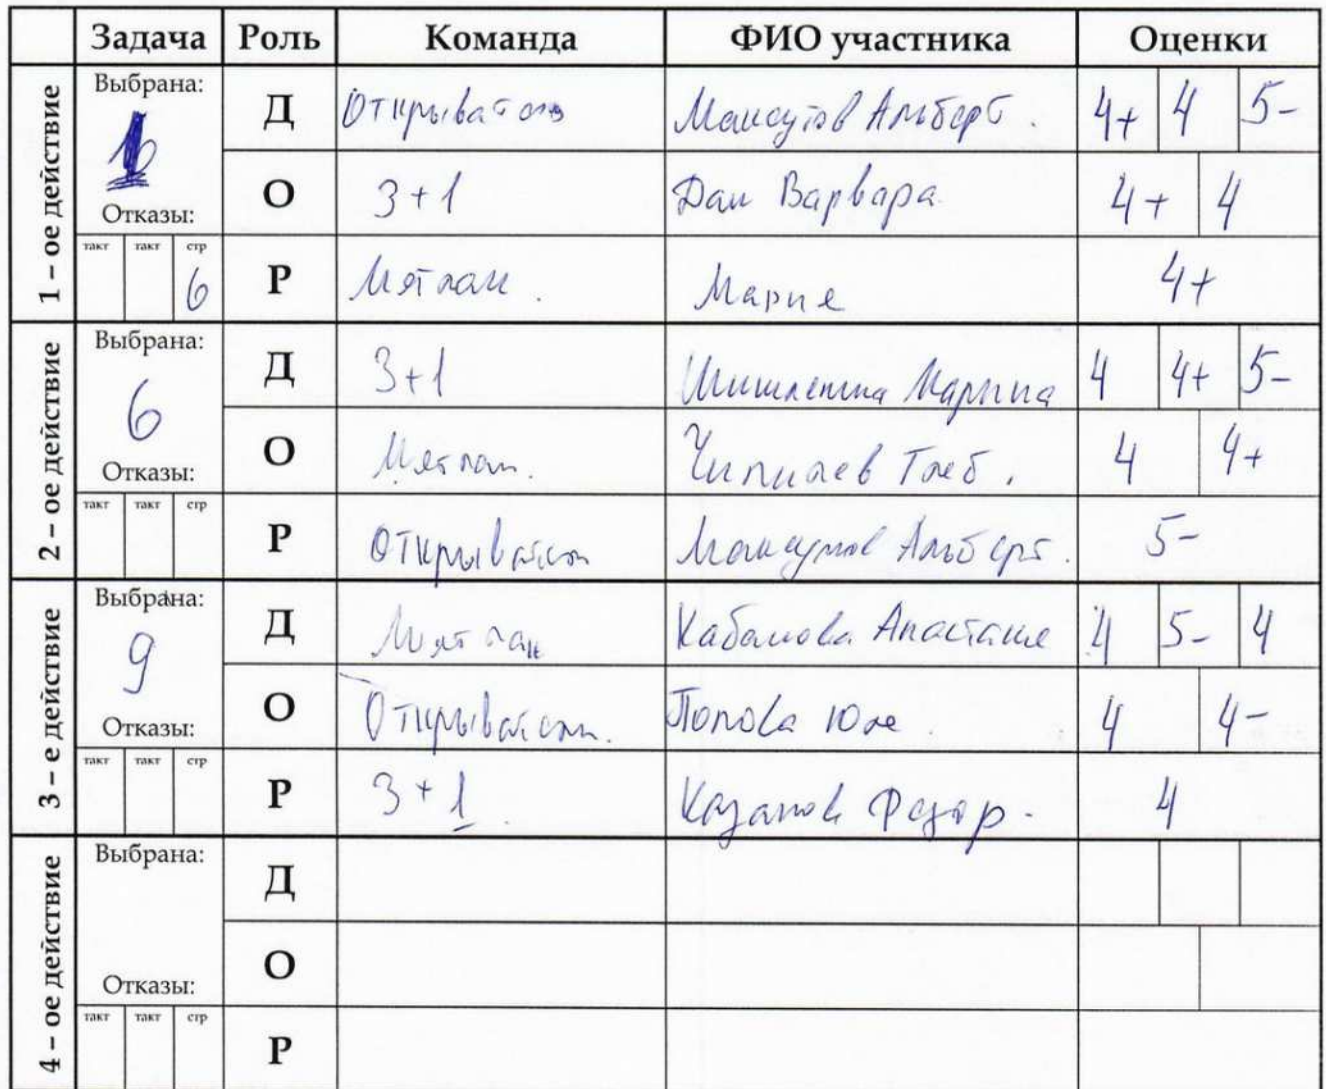 Задача Роль Команда ФИО участника Оценки
1 – ое действие
Выбрана:
Отказы:
такт такт стр
6
Д Открыватели Максутов Альберт. 4+ 4 5-
О 3+1 Дан Варвара 4+ 4
Р Мария 4+
2 – ое действие
Выбрана:
6
Отказы:
такт такт стр
Д 3+1 Марина 4 4+ 5-
О Глеб. 4 4+
Р Открыватели Максутов Альберт. 5-
3 – е действие
Выбрана:
9
Отказы:
такт такт стр
Д Кабанова Анастасия 4 5- 4
О Открыватели. Попова Юля 4 4-
Р 3+1 Казанов Федор. 4
4 – ое действие
Выбрана:
Отказы:
такт такт стр
Д
О
Р